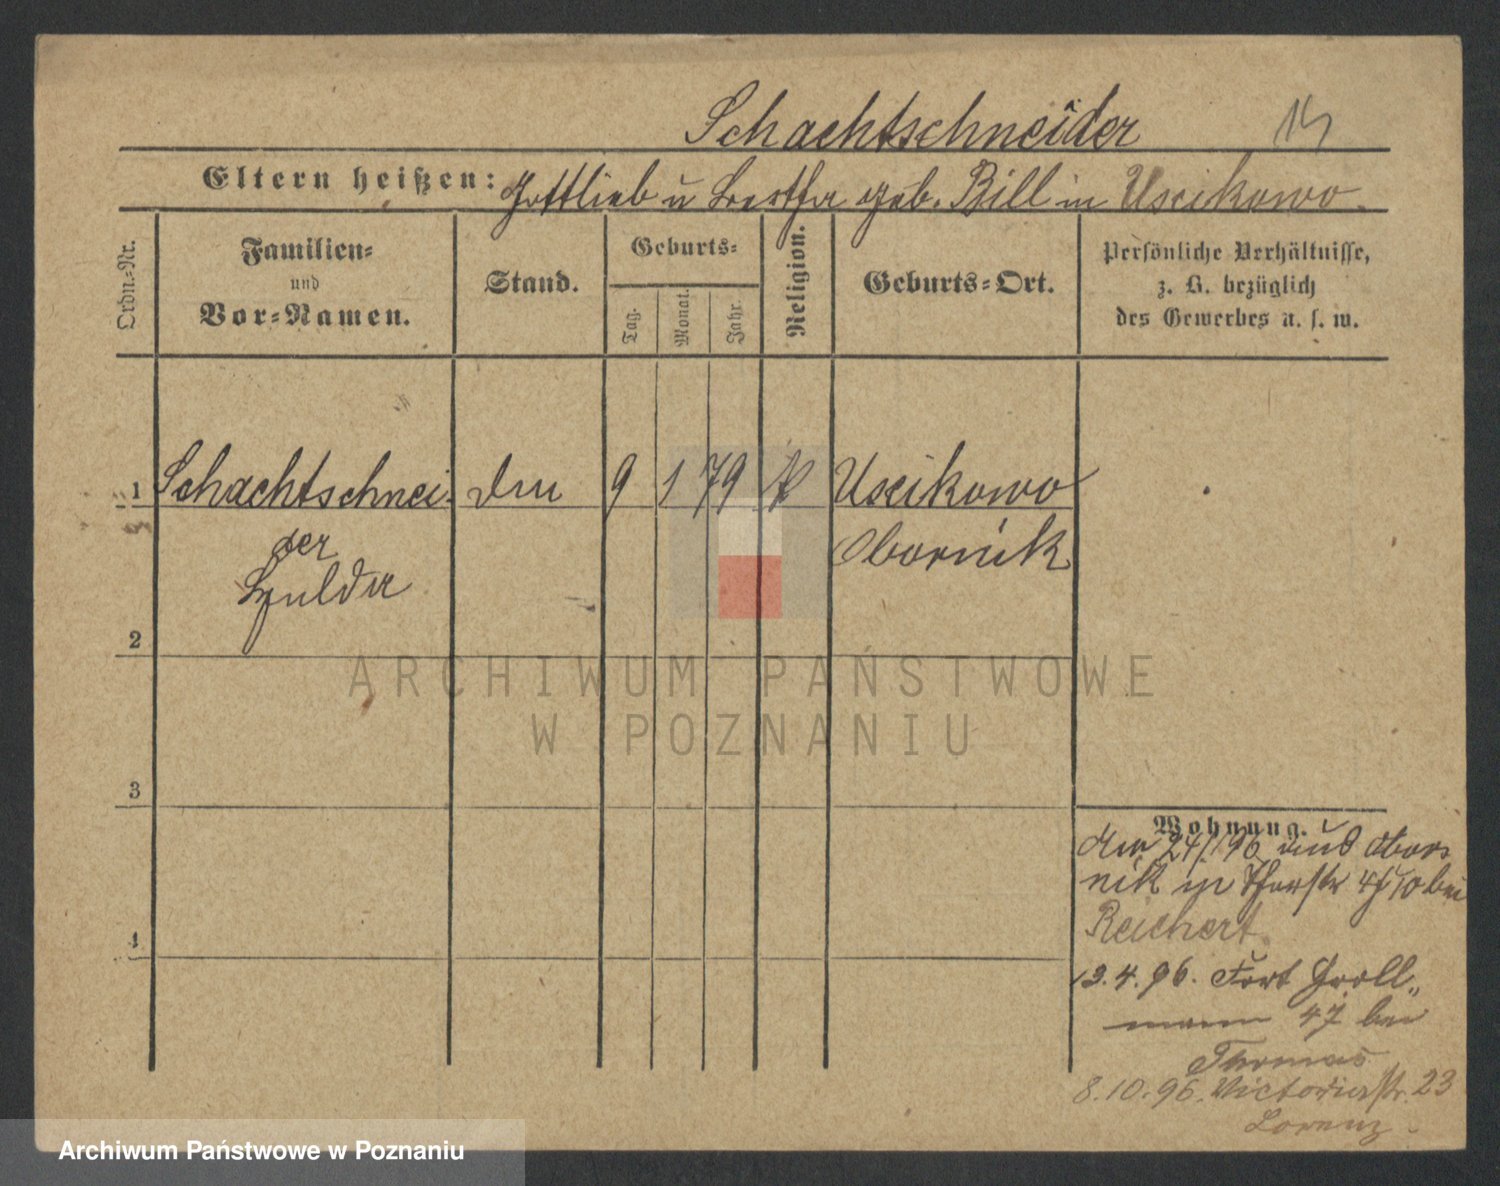 Schachtschneider 14
Eltern heißen: Gottlieb u Bertha geb. Bill in Uscikowo
Ordn.-Nr.
Familien-
und
Vor-Namen.
Stand.
Geburts-
Tag.
Monat.
Jahr.
Religion.
Geburts-Ort.
Persönliche Verhältnisse,
z. B. bezüglich
des Gewerbes u. s. w.
1 Schachtschnei- 9 1 79 Uscikowo
der Obornik
Hulda
2
ARCHIWUM PAŃSTWOWE
W POZNANIU
3
Wohnung.
24/1 96 aus Obor
nik in bei
Reichert
4
13.4.96. Fort Groll„
mann 47 bei
Thomas
8.10.96. Victoriastr. 23
Lorenz
Archiwum Państwowe w Poznaniu